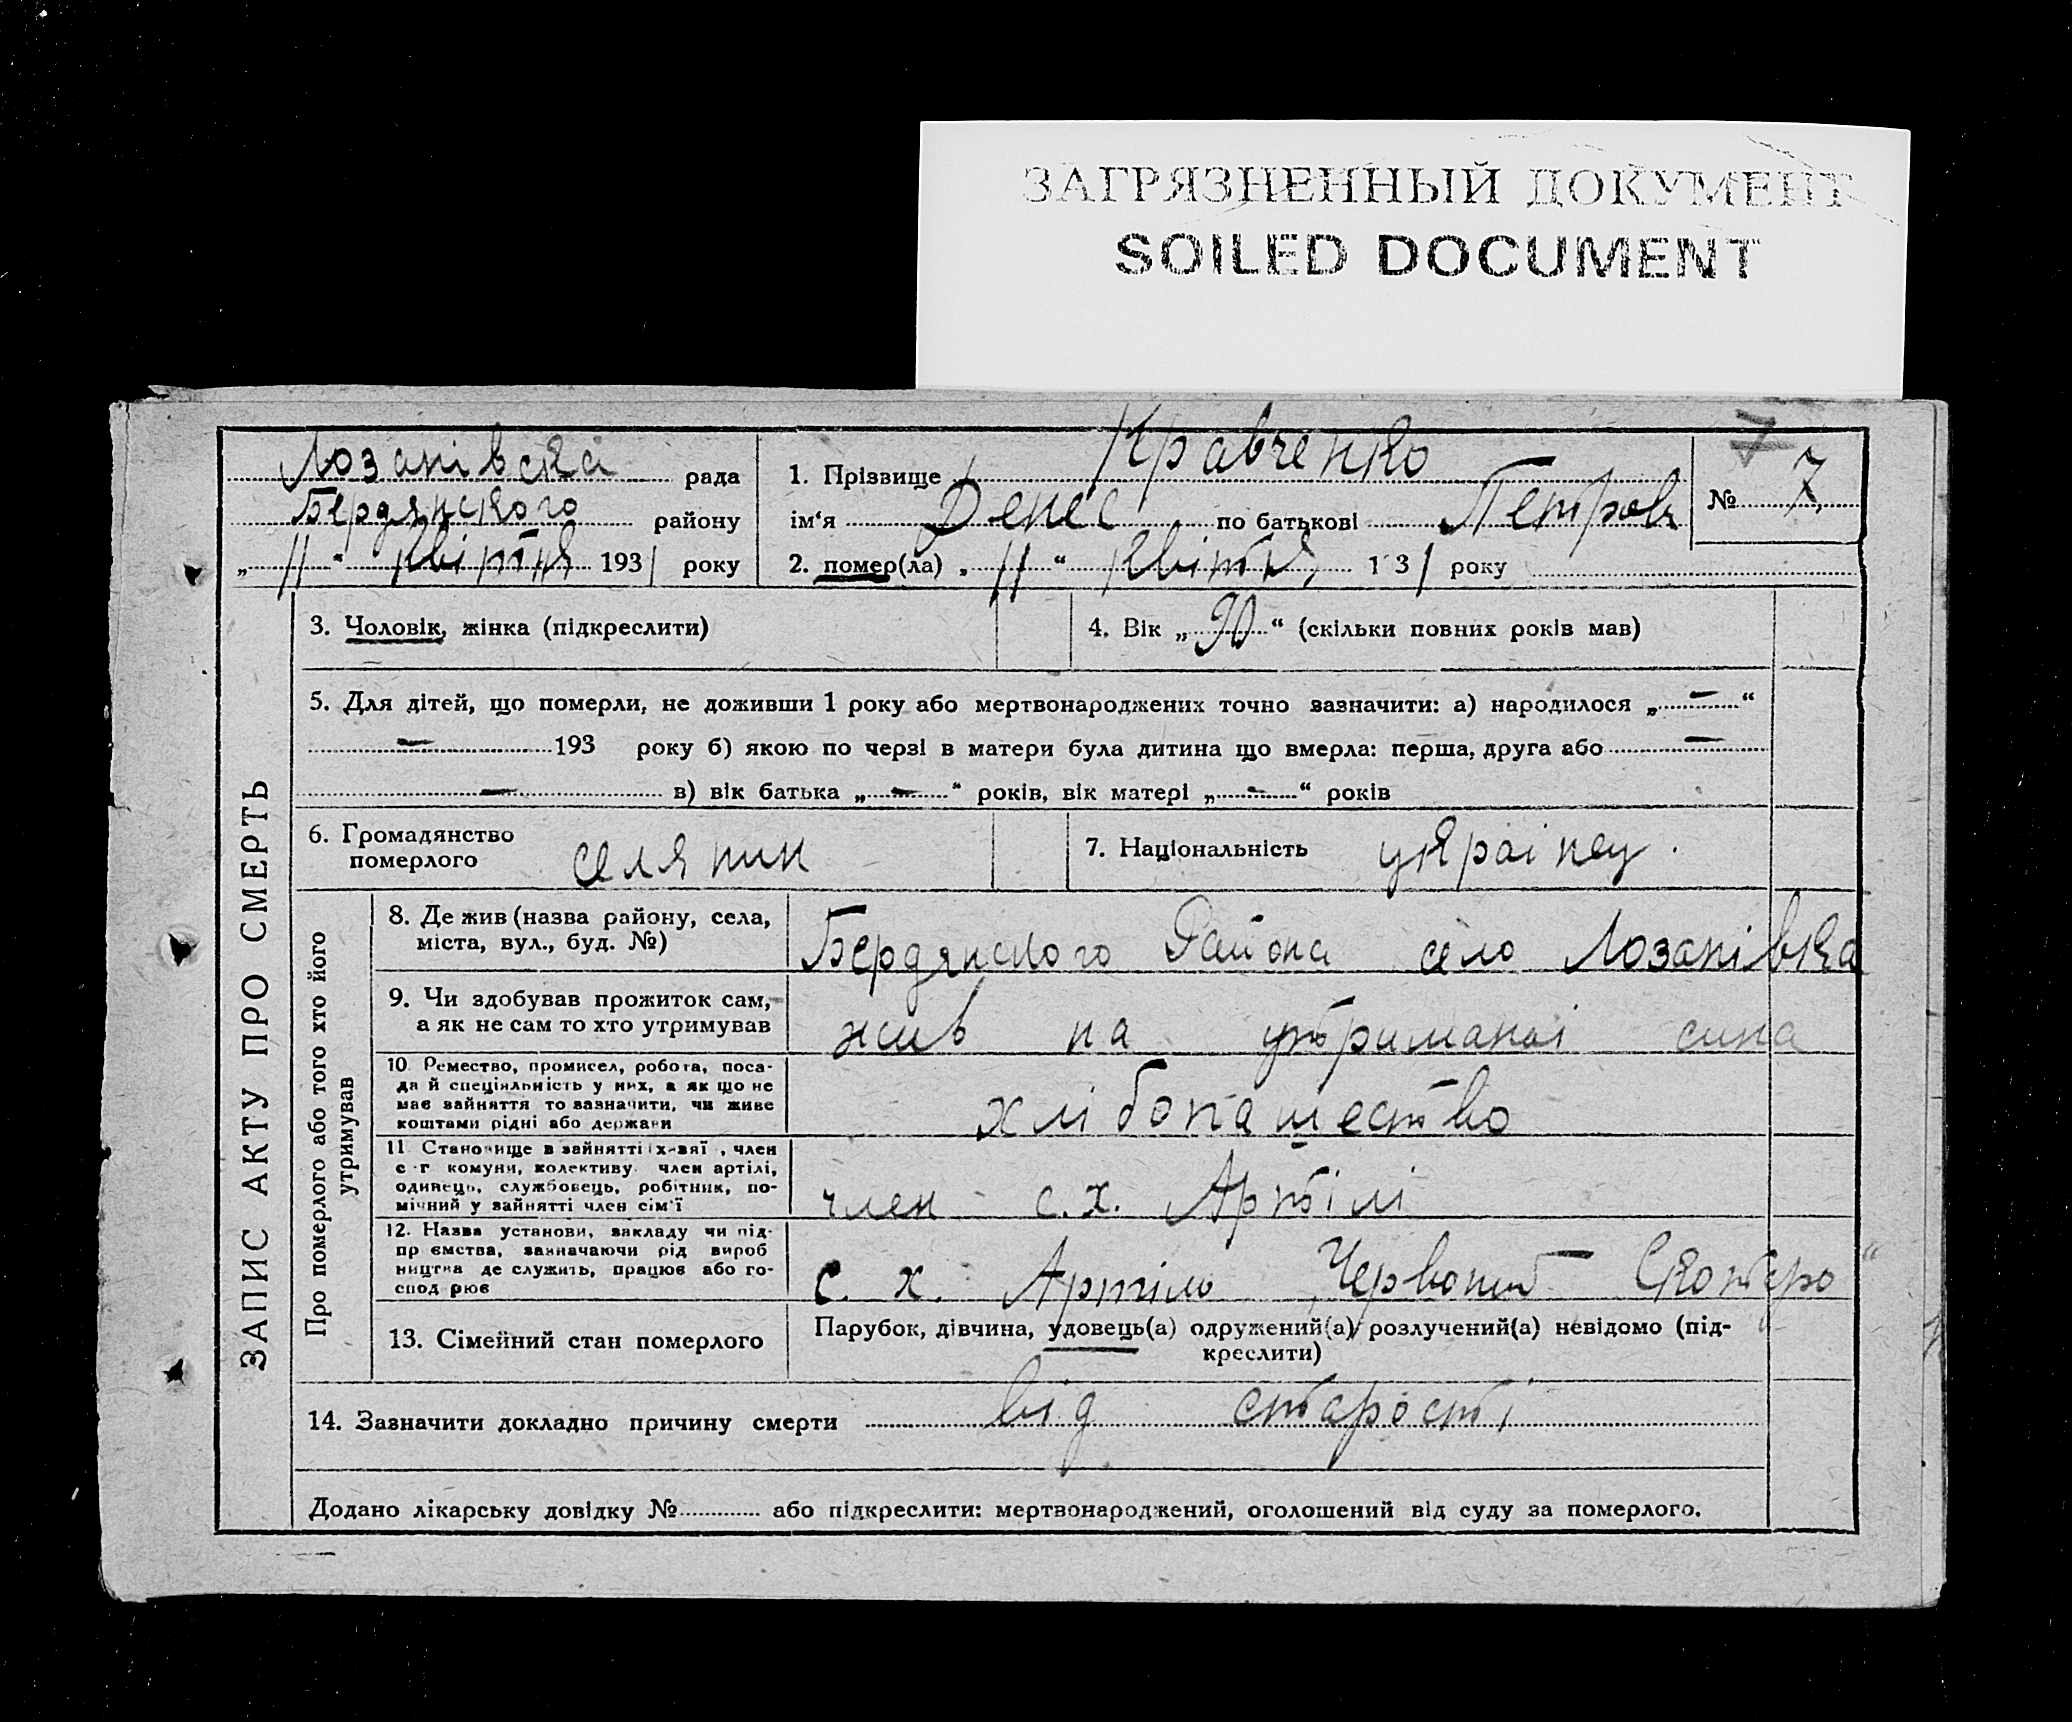 ЗАГРЯЗНЕННЫЙ ДОКУМЕНТ
SOILED DOCUMENT
7
Лозанівска рада
Бердянского району
„ 11 “ квітня 1931 року
1. Прізвище Кравченко
ім‘я Денес по батькові Петров
2. помер(ла) „ 11 “ квітня 1 31 року
№ 7
ЗАПИС АКТУ ПРО СМЕРТЬ
3. Чоловік, жінка (підкреслити)
4. Вік „ 90 “ (скільки повних років мав)
5. Для дітей, що померли, не доживши 1 року або мертвонароджених точно зазначити: а) народилося „ — “
— 193 року б) якою по черзі в матери була дитина що вмерла: перша, друга або —
— в) вік батька „ — “ років, вік матері „ — “ років
6. Громадянство
померлого селянин
7. Національність українец.
Про померлого або того хто його
утримував
8. Де жив (назва району, села,
міста, вул., буд. №)
Бердянского Района село Лозанівка
9. Чи здобував прожиток сам,
а як не сам то хто утримував
жив на утриманні сина
10. Ремество, промисел, робота, поса-
да й спеціяльність у них, а як що не
має зайняття то зазначити, чи живе
коштами рідні або держави
хлібопашество
11. Становище в зайнятті х-вяї, член
с-г комуни, колективу член артілі,
одинець, службовець, робітник, по-
мічний у зайнятті член сім‘ї
член с.х. Артілі
12. Назва установи, закладу чи під-
пр ємства, зазначаючи рід вироб
ництва де служить, працює або го-
спод рює
с. х. Артіль Червоний “
13. Сімейний стан померлого
Парубок, дівчина, удовець(а) одружений(а) розлучений(а) невідомо (під-
креслити)
14. Зазначити докладно причину смерти від старості
Додано лікарську довідку № або підкреслити: мертвонароджений, оголошений від суду за померлого.